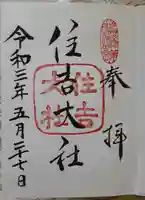 奉拝
住吉大社
住吉大社
令和三年五月二十七日